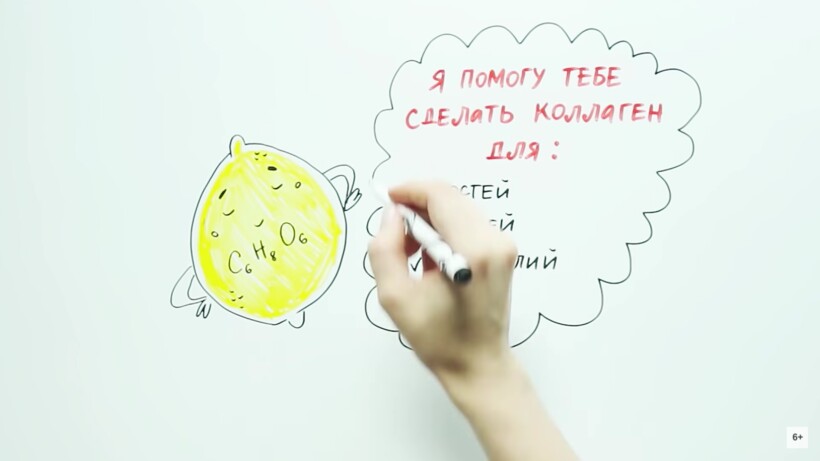 C6H8O6
Я ПОМОГУ ТЕБЕ
СДЕЛАТЬ КОЛЛАГЕН
ДЛЯ:
6+